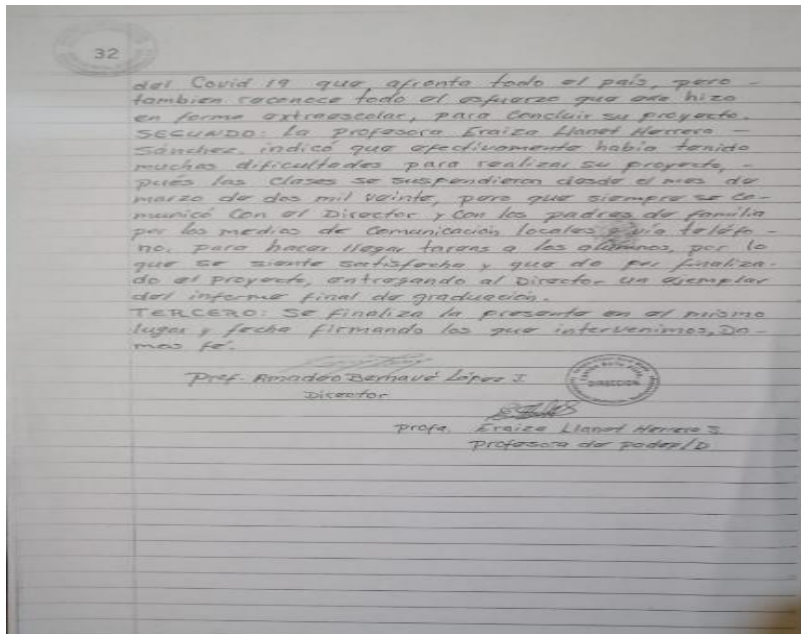 32
del Covid 19 que afronta todo el país, pero -
tambien reconoce todo el esfuerzo que ese hizo
en forma extraescolar, para concluir su proyecto.
SEGUNDO: La profesora Eraiza Llanet Herrera -
Sánchez, indicó que efectivamente había tenido
muchas dificultades para realizar su proyecto, -
pués las clases se suspendieron desde el mes de
marzo de dos mil veinte, pero que siempre se co-
municó con el Director y con los padres de familia
por los medios de comunicación locales o vía teléfo-
no, para hacer llegar tareas a los alumnos, por lo
que se siente satisfecha y que da por finaliza-
do el proyecto, entregando al Director un ejemplar
del informe final de graduación.
TERCERO: Se finaliza la presente en el mismo
lugar y fecha firmando los que intervenimos, Da-
mos fé.
Prof. Amadeo Bernavé López J.
Director
DIRECCION
Profa. Eraiza Llanet Herrera S.
Profesora de